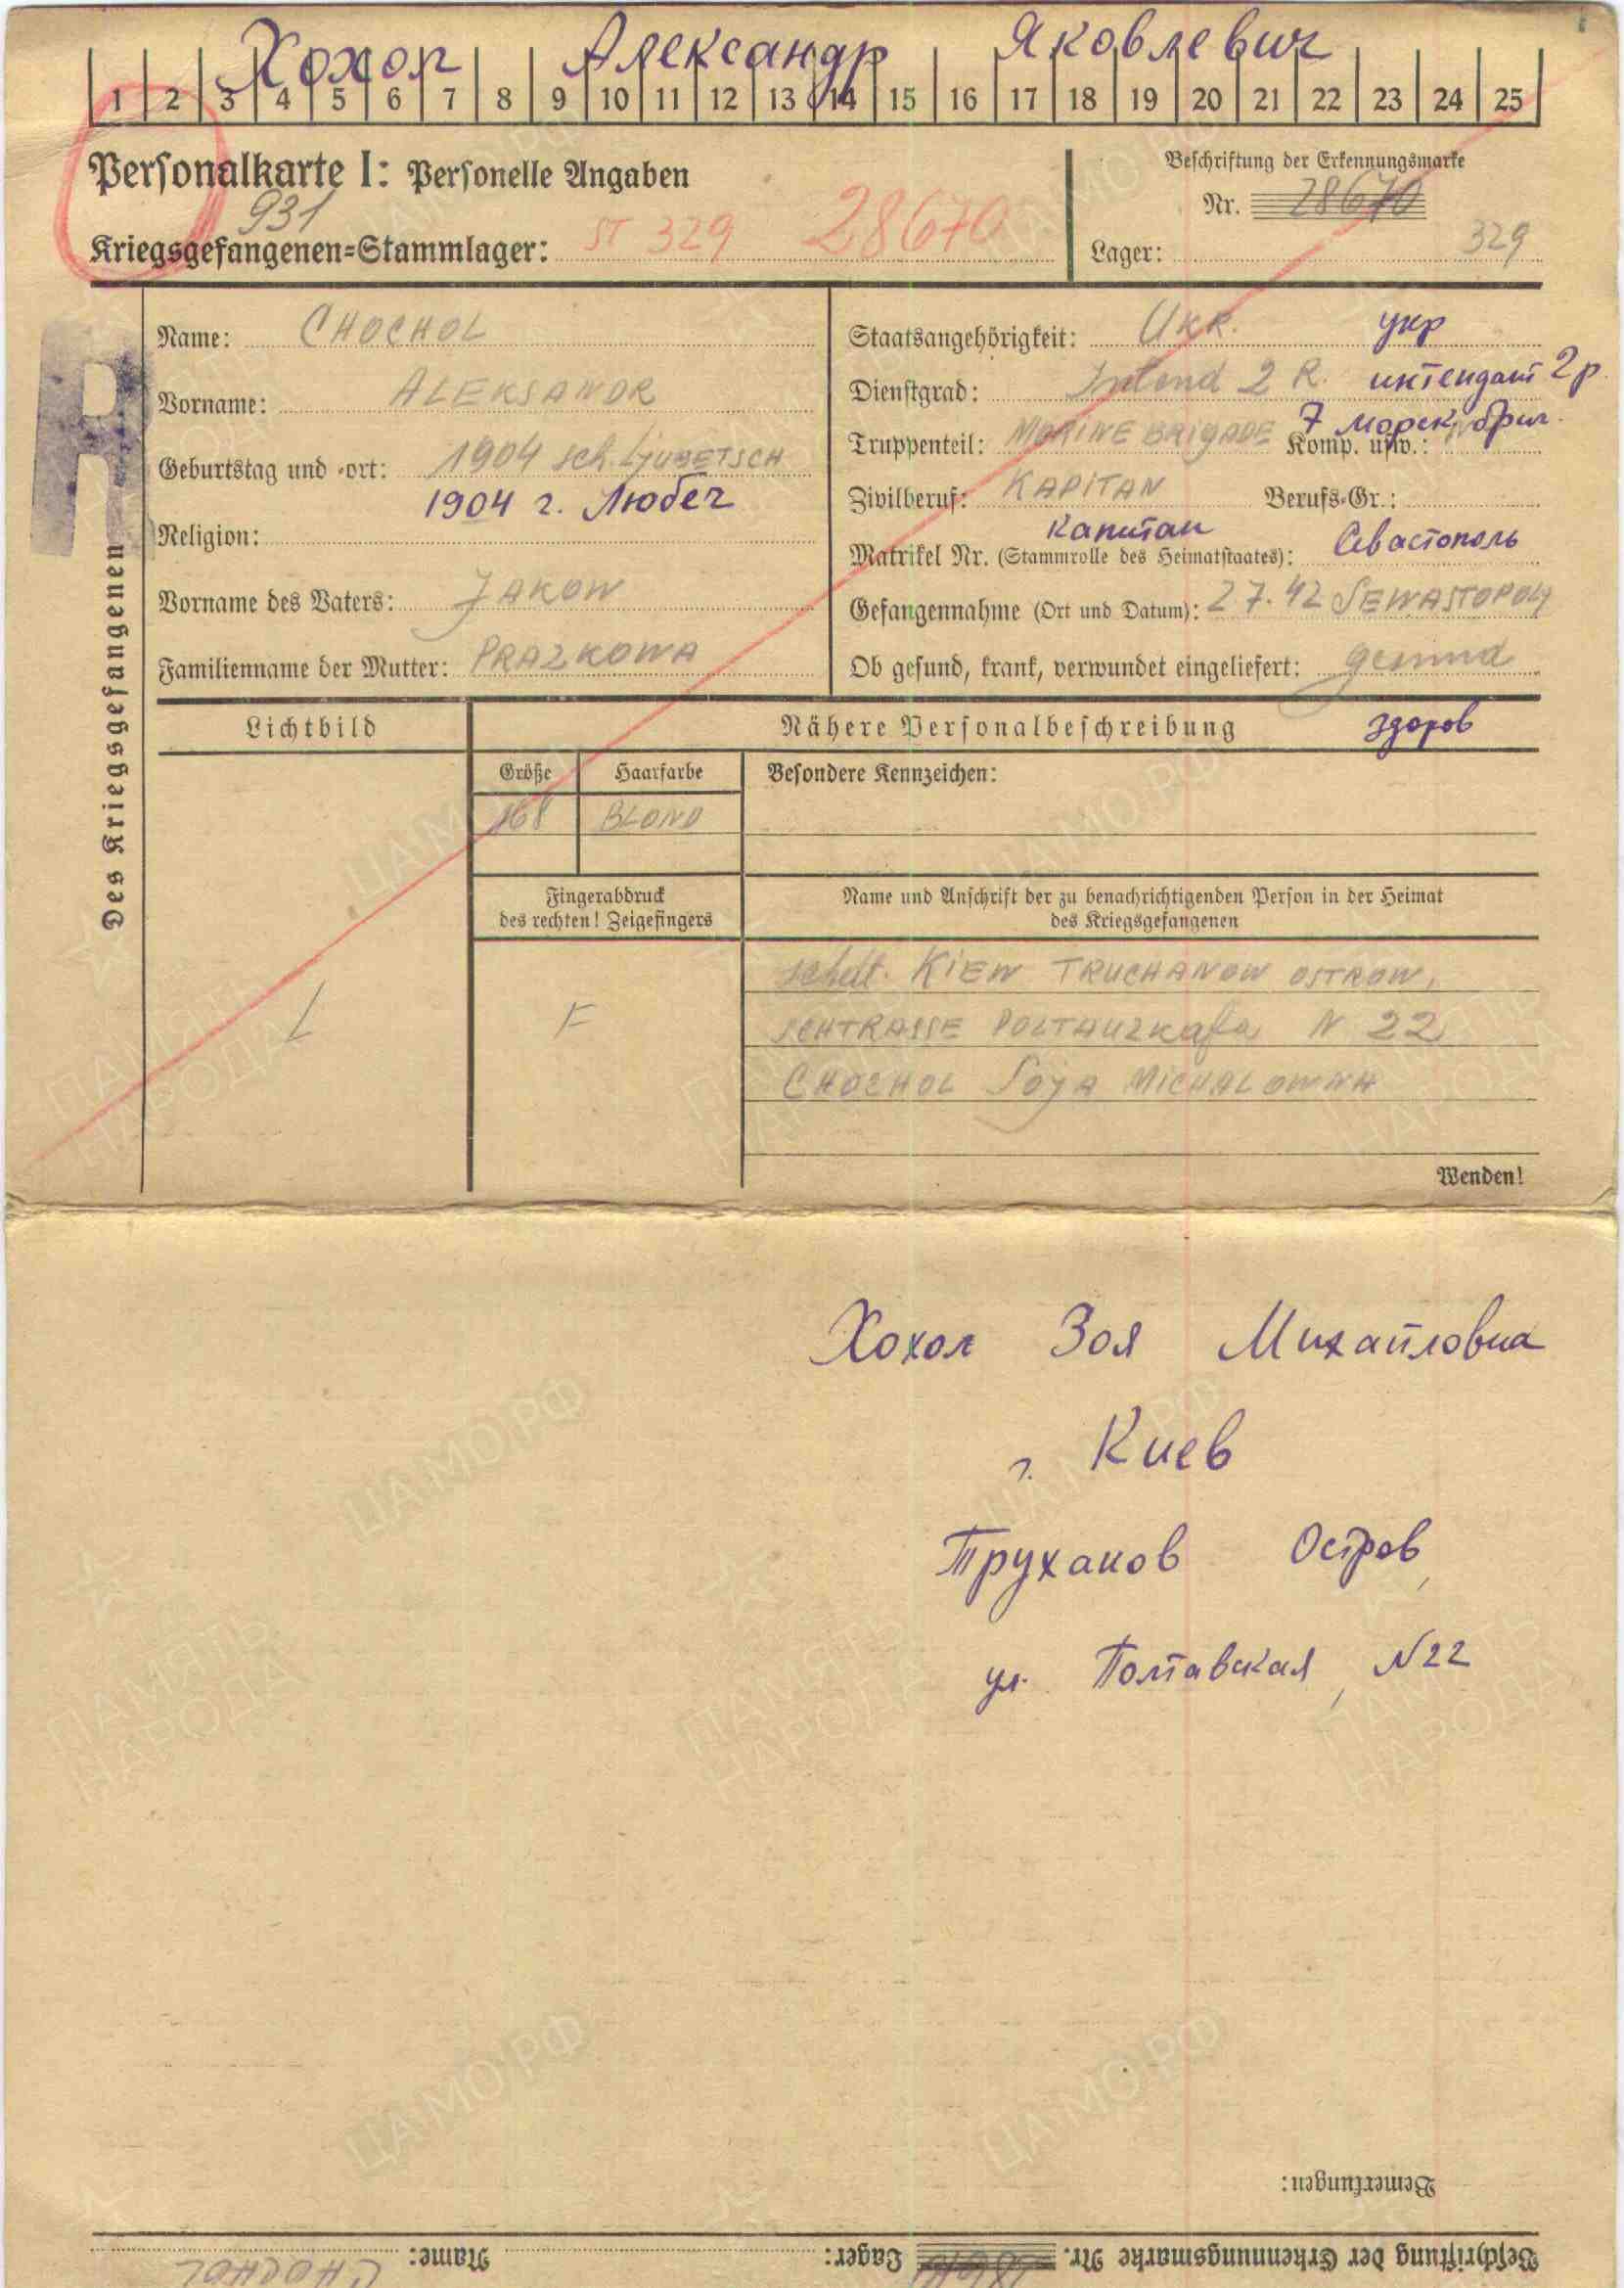 Хохол Александр Яковлевич
1 2 3 4 5 6 7 8 9 10 11 12 13 14 15 16 17 18 19 20 21 22 23 24 25
Personalkarte I: Personelle Angaben
Beschriftung der Erkennungsmarke
931
Nr. 28670
Kriegsgefangenen=Stammlager: ST 329 28670
Lager: 329
Des Kriegsgefangenen
Name: CHOCHOL
Vorname: ALEKSANDR
Geburtstag und -ort: 1904 sch. Ljubetsch
1904 г. Любеч
Religion:
Vorname des Vaters: JAKOW
Familienname der Mutter: PRAZKOWA
Staatsangehörigkeit: Ukr. укр
Dienstgrad: Intend 2 R. интендант 2 р.
Truppenteil: MARINE BRIGADE Komp. usw.: 7 морск. бриг.
Zivilberuf: KAPITAN Berufs-Gr.:
Капитан
Matrikel Nr. (Stammrolle des Heimatstaates): Севастополь
Gefangennahme (Ort und Datum): 2 7. 42 SEWASTOPOLJ
Ob gesund, krank, verwundet eingeliefert: gesund
здоров
Lichtbild
Nähere Personalbeschreibung
Größe Haarfarbe Besondere Kennzeichen:
168 BLOND
Fingerabdruck
des rechten! Zeigefingers
Name und Anschrift der zu benachrichtigenden Person in der Heimat
des Kriegsgefangenen
L
F
KIEW TRUCHANOW OSTROW,
SCHTRASSE POLTAUZKAJA N 22
CHOCHOL SOJA MICHALOWNA
Wenden!
Хохол Зоя Михайловна
г. Киев
Труханов Остров,
ул. Полтавская, N22
Bemerkungen:
Beschriftung der Erkennungsmarke Nr. Lager: Name: CHOCHOL
ЦАМО.РФ
ПАМЯТЬ
НАРОДА